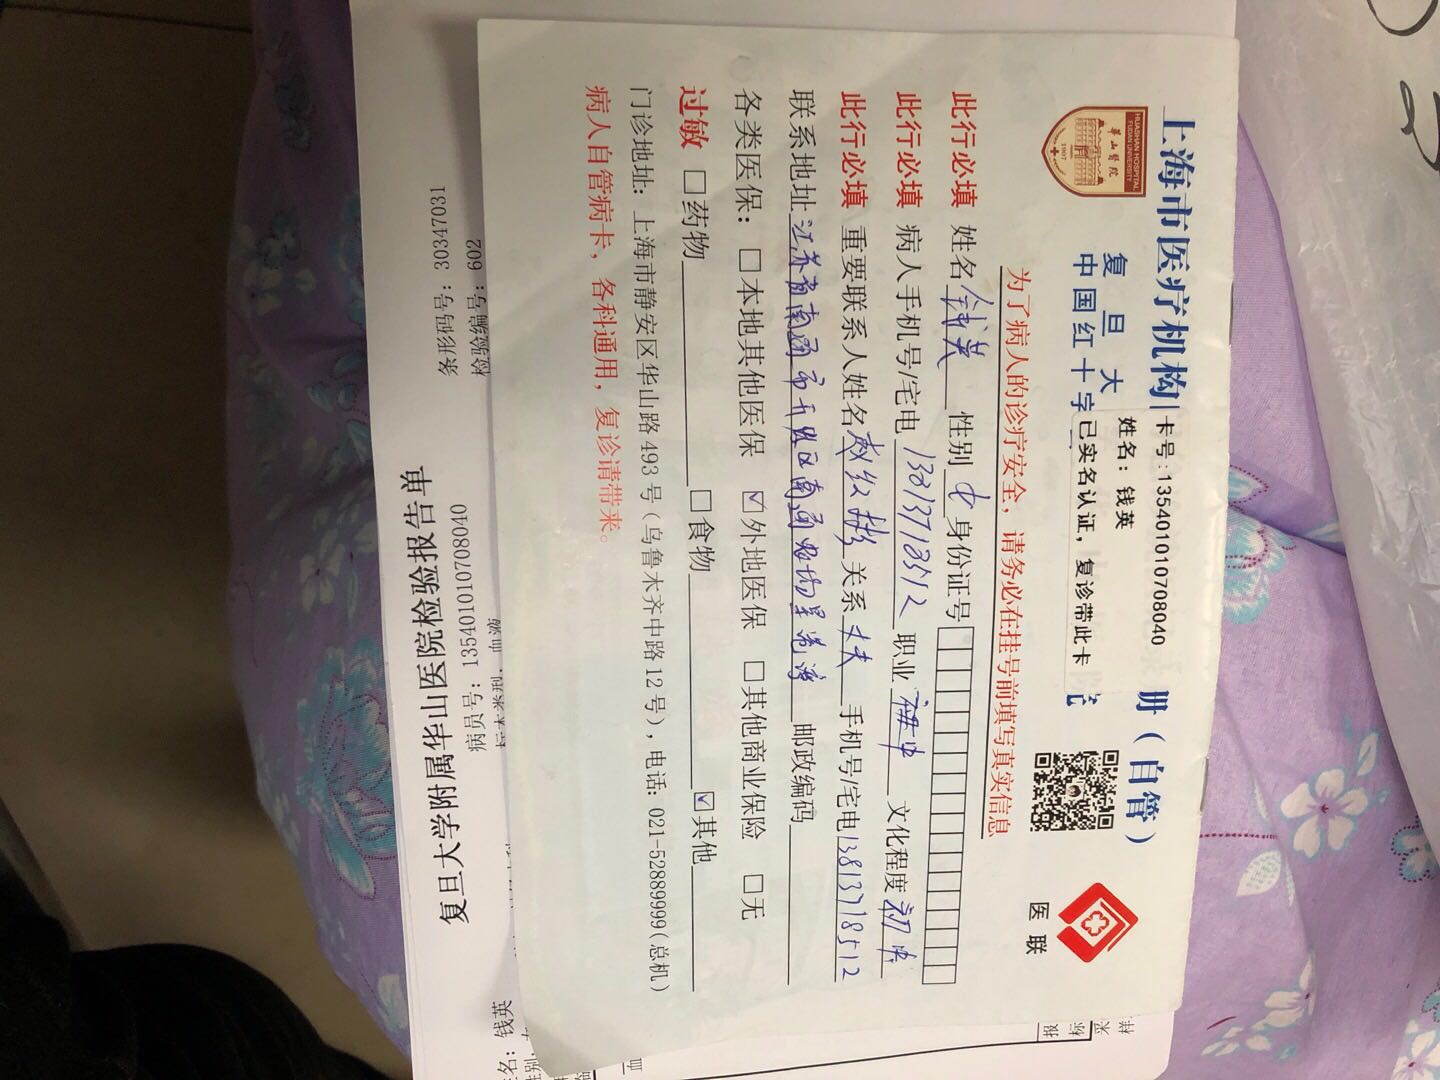 上海市医疗机构
册（自管）
卡号：13540101070​8040
姓名：钱英
已实名认证，复诊带此卡
复旦大
中国红十字
HUASHAN HOSPITAL
FUDAN UNIVERSITY
華山醫院
1907
医联
为了病人的诊疗安全，请务必在挂号前填写真实信息
此行必填 姓名 钱英 性别 女 身份证号
此行必填 病人手机号/宅电 职业 文化程度 初中
此行必填 重要联系人姓名 关系 丈夫 手机号/宅电 13813718512
联系地址 江苏省南通市开发区南通 邮政编码
各类医保：□本地其他医保 ☑外地医保 □其他商业保险 □无
过敏 □药物 □食物 ☑其他
门诊地址：上海市静安区华山路493号（乌鲁木齐中路12号），电话：021-52889999（总机）
病人自管病卡，各科通用，复诊请带来。
复旦大学附属华山医院检验报告单
条形码号：30347031
病员号：13540101070​8040
检验编号：602
名：钱英